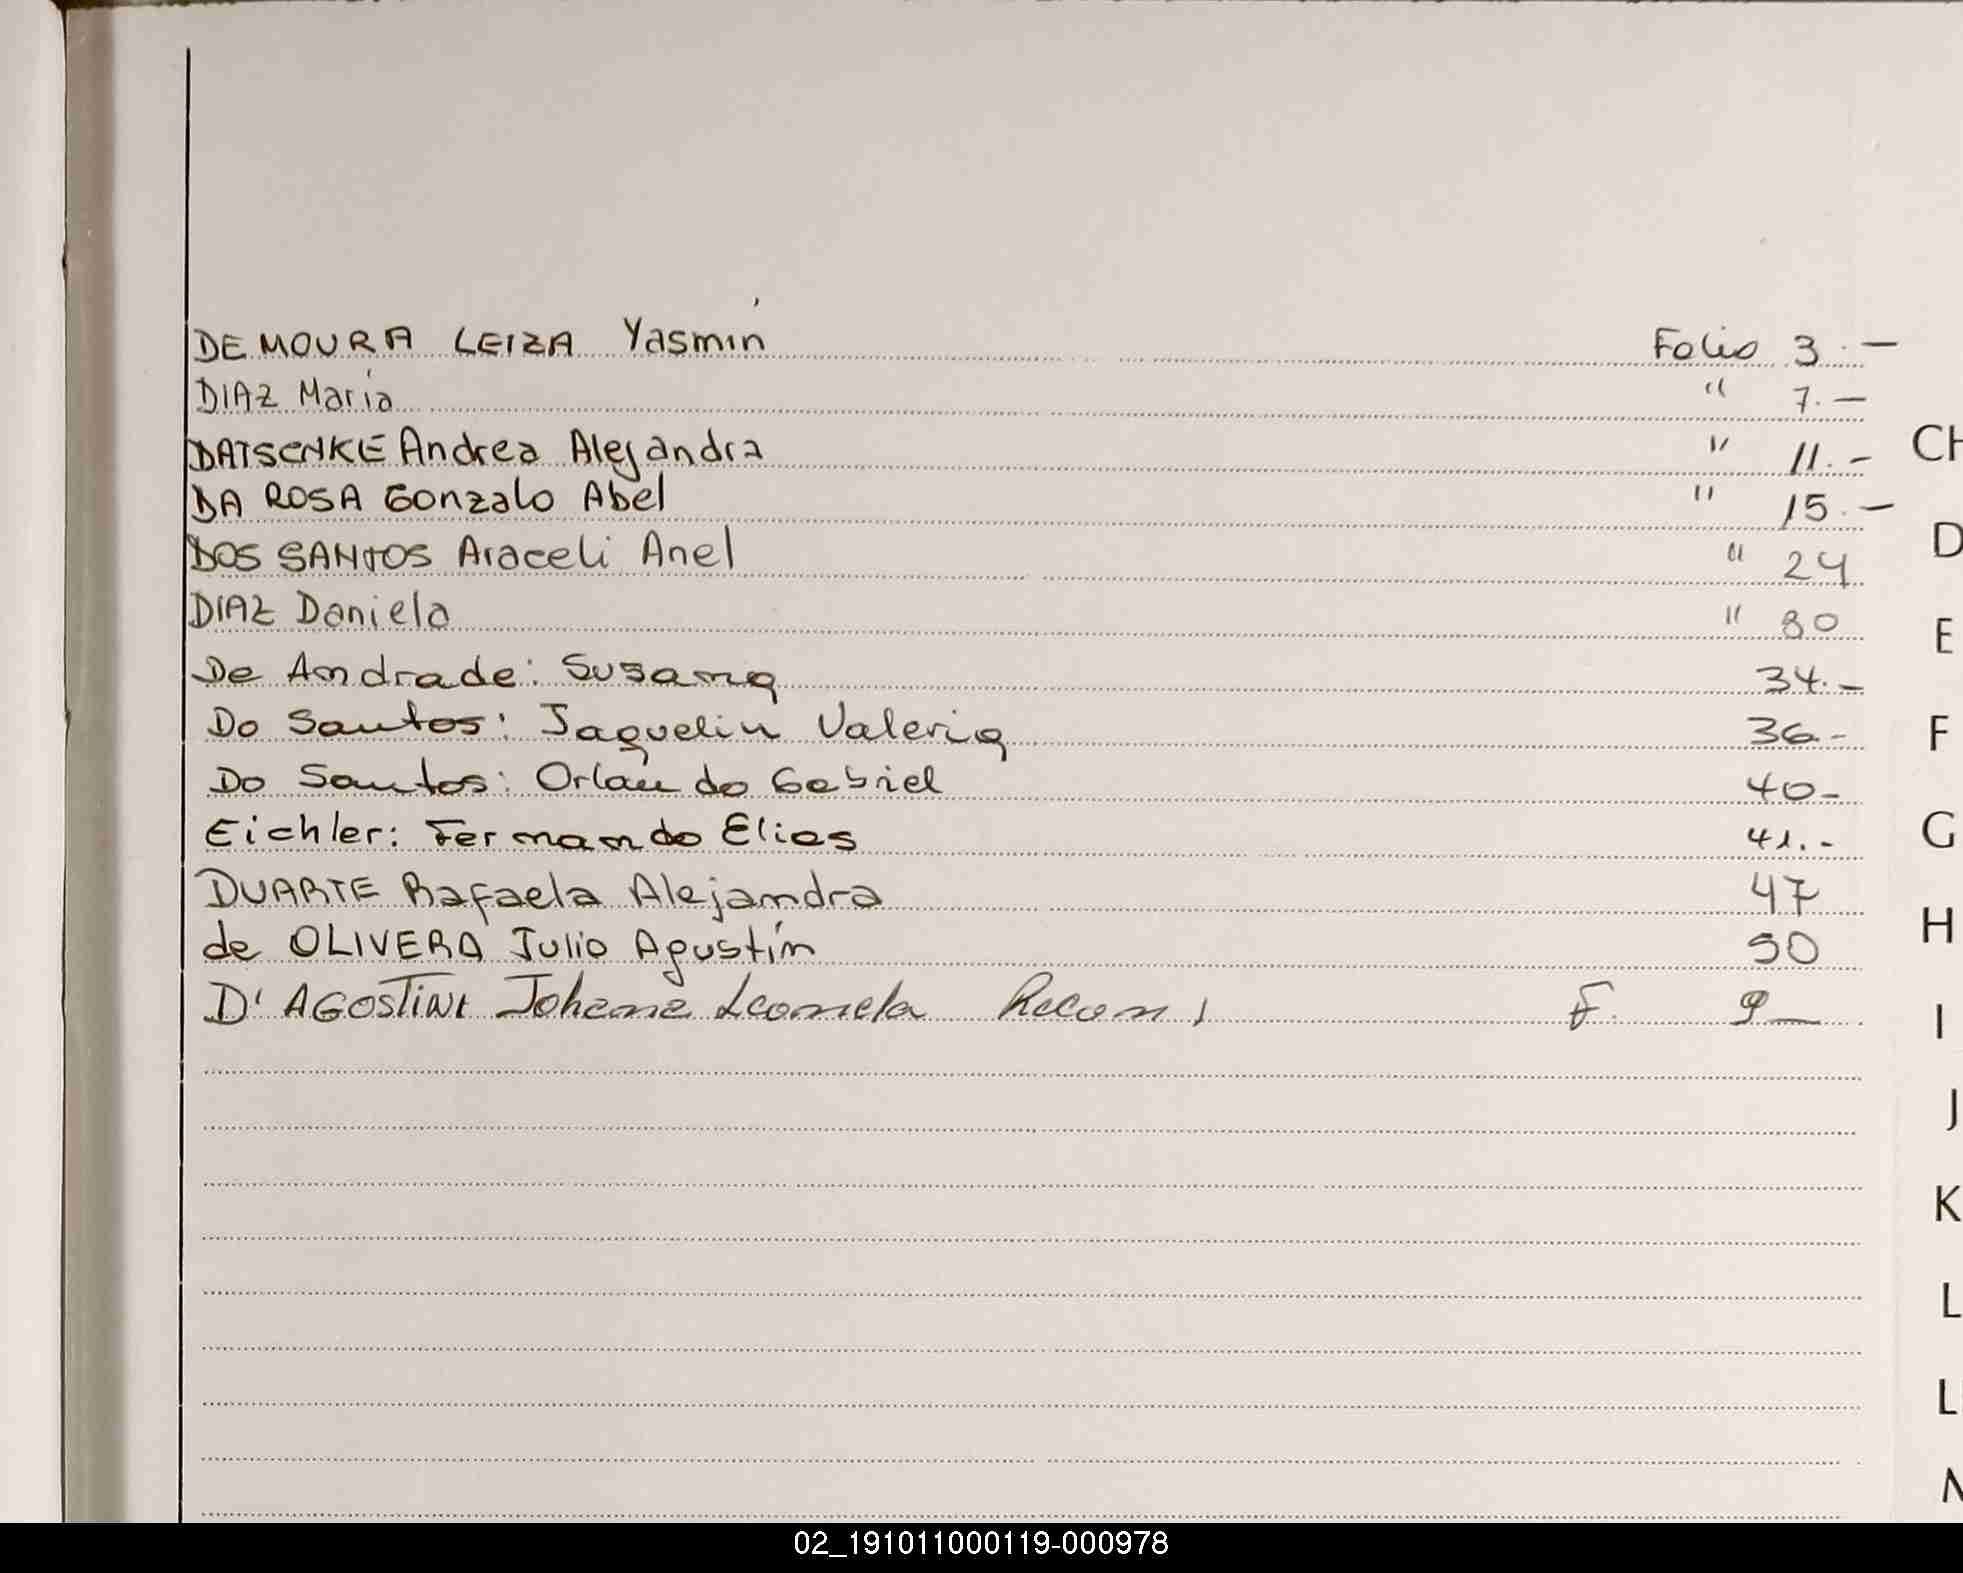 DE MOURA LEIZA Yasmín Folio 3.—
DIAZ María " 7.—
DATSENKE Andrea Alejandra " 11.-
DA ROSA Gonzalo Abel " 15.—
DOS SANTOS Araceli Anel " 24
DIAZ Daniela " 30
De Andrade: Susana 34.-
Do Santos: Jaquelin Valeria 36.-
Do Santos: Orlando Gabriel 40-
Eichler: Fernando Elias 41.-
DUARTE Rafaela Alejandra 47
de OLIVERA Julio Agustín 50
D'AGOSTINI Johana Leonela F. 9—
CH
D
E
F
G
H
I
J
K
L
02_191011000119-000978